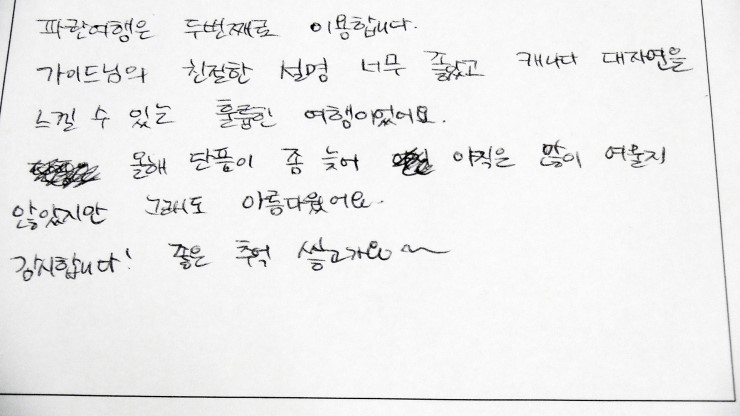 파란여행은 두번째로 이용합니다.
가이드님의 친절한 설명 너무 좋았고 캐나다 대자연을
느낄 수 있는 훌륭한 여행이었어요.
올해 단풍이 좀 늦어 아직은 많이 여울지
않았지만 그래도 아름다웠어요.
감사합니다! 좋은 추억 쌓고가요~